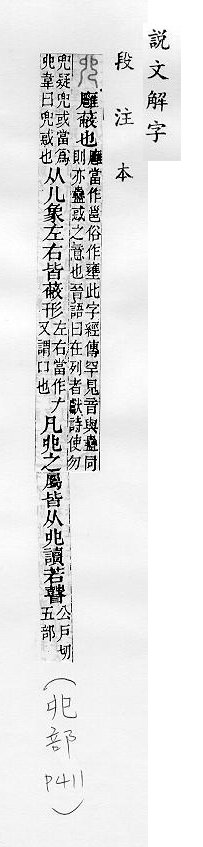 說文解字
段注本
𠑹廱蔽也
廱當作邕俗作壅此字經傳罕見音與蠱同
則亦蠱惑之意也晉語曰在列者獻詩使勿
兜疑兜或當爲
𠑹韋曰兜惑也
从儿象左右皆蔽形
左右當作𠂇
又謂口也
凡𠑹之屬皆从𠑹讀若瞽
公戶切
五部
(𠑹部 P411)